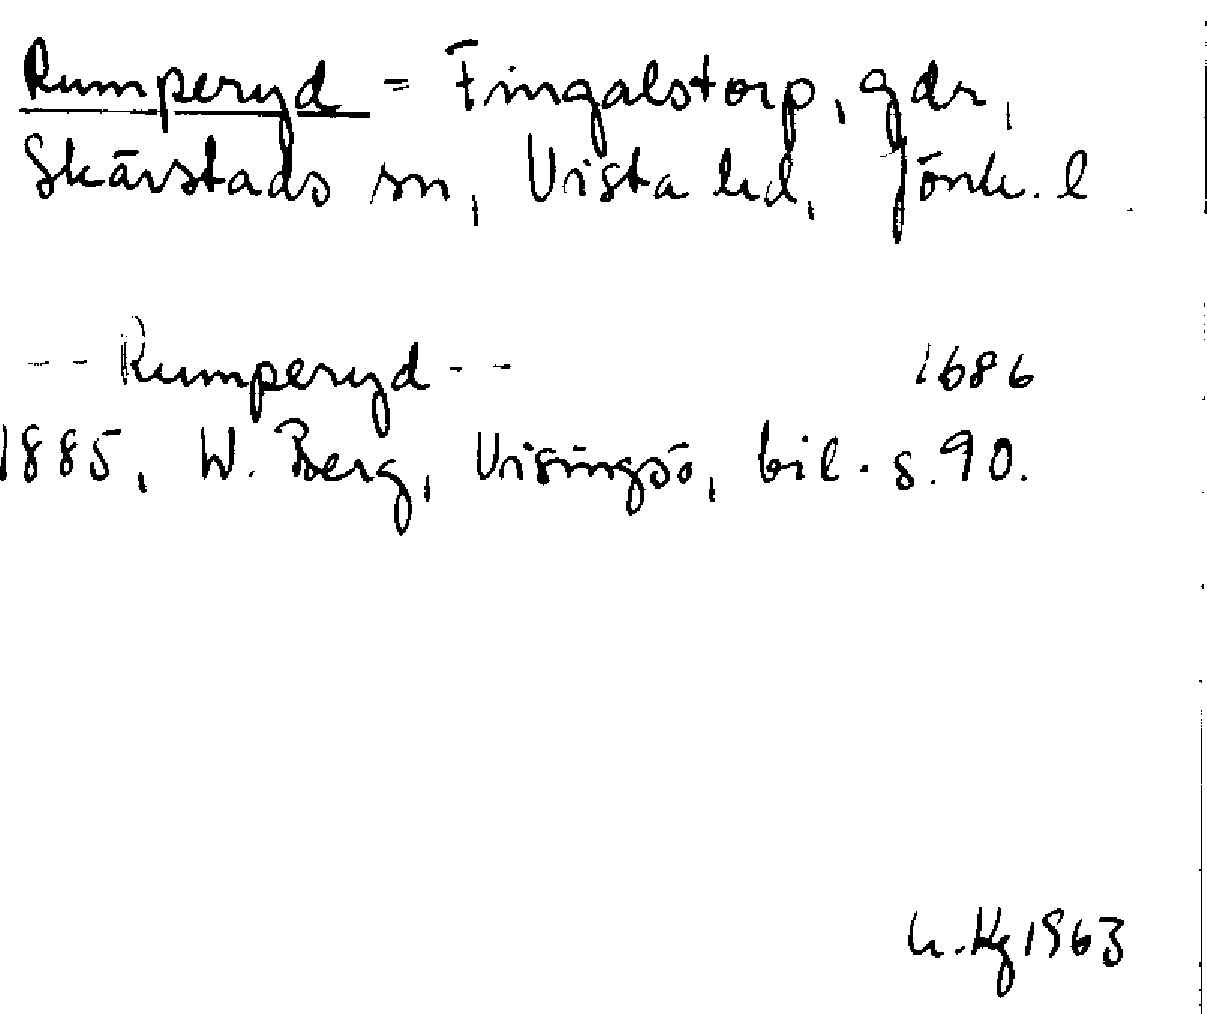 Rumperyd = Fingalstorp, gdr,
Skärstads sn, Vista hd, Jönk. l.
-- Rumperyd -- 1686
1885, W. Berg, Visingsö, bil. s. 90.
1963